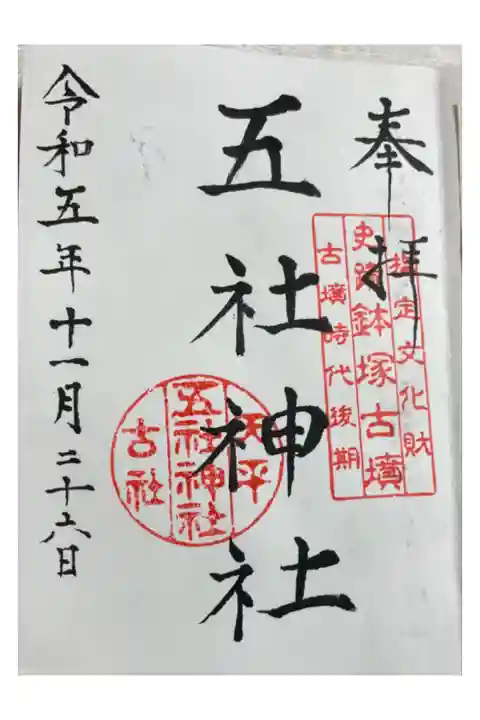 奉拝
指定文化財
史跡鉢塚古墳
古墳時代後期
五社神社
天平
五社神社
古社
令和五年十一月二十六日